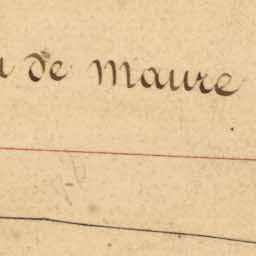 de Maure